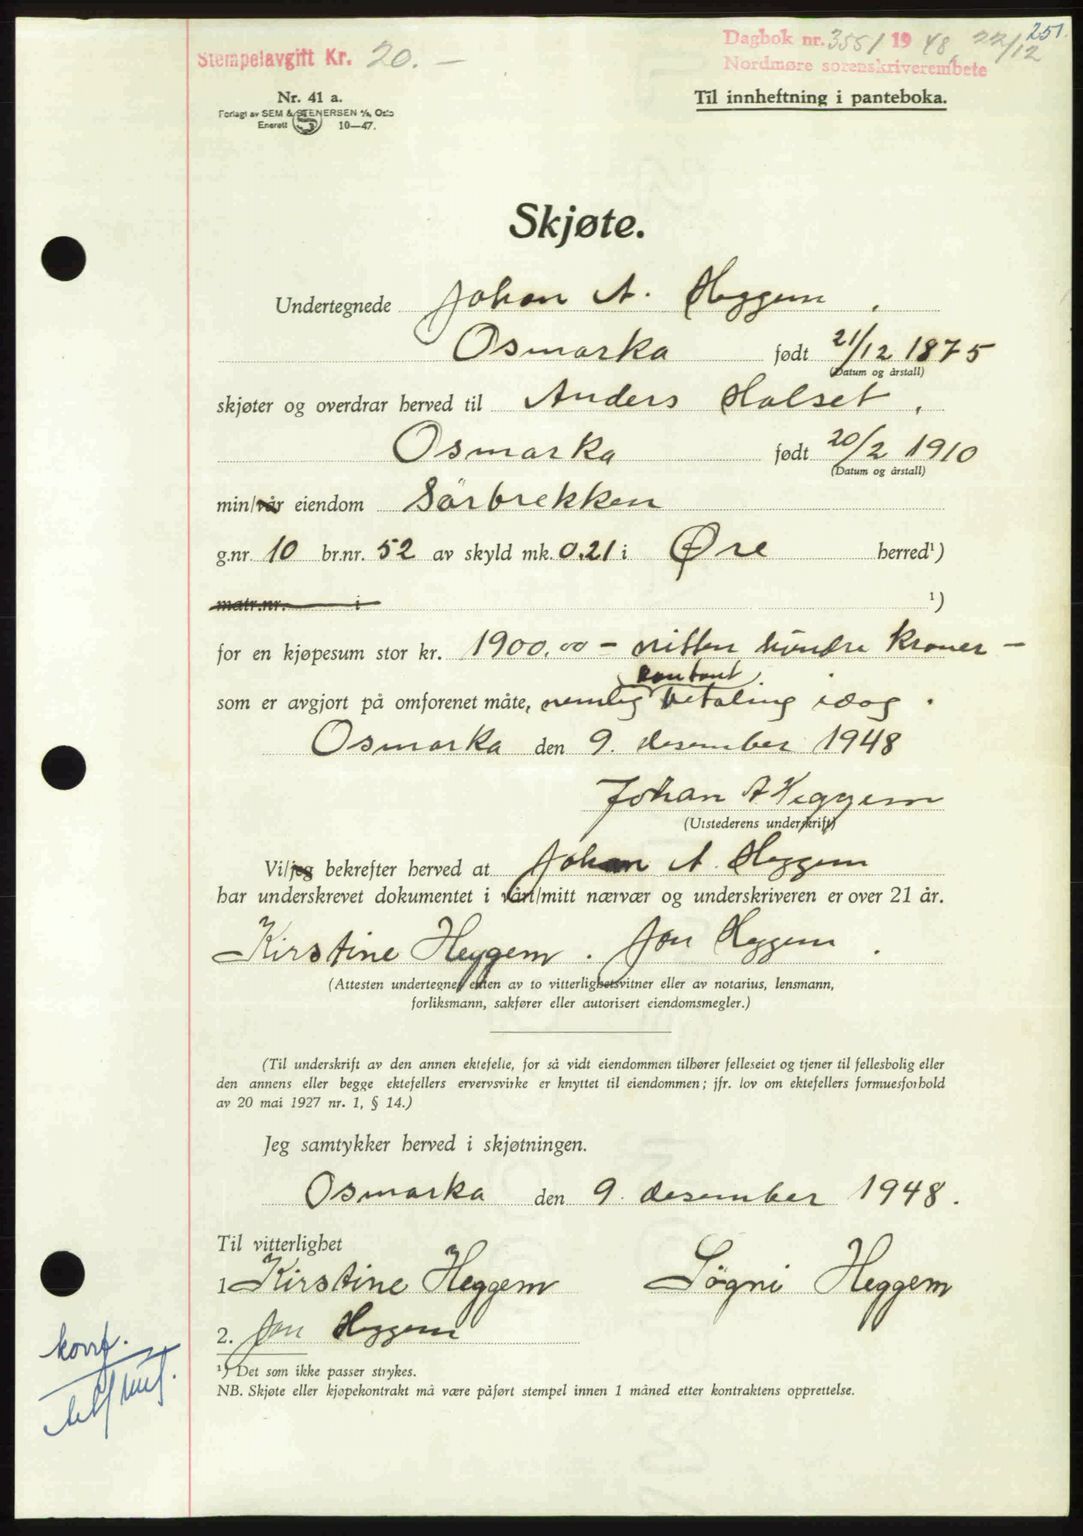 251.
Stempelavgift Kr. 20.-
Dagbok nr. 3551 19 48, 22/12
Nordmøre sorenskriverembete
Nr. 41 a.
Forlagt av SEM & STENERSEN A/S, Oslo
Enerett 10—47.
Til innheftning i panteboka.
Skjøte.
Undertegnede Johan A. Heggem,
Osmarka født 21/12 1875
(Datum og årstall)
skjøter og overdrar herved til Anders Halset,
Osmarka født 20/2 1910
(Datum og årstall)
min/vår eiendom Sörbrekken
g.nr. 10 br.nr. 52 av skyld mk. 0.21 i Øre herred¹)
matr.nr. i ¹)
for en kjøpesum stor kr. 1900,00 — nitten hundre kroner —
kontant
som er avgjort på omforenet måte, nemlig betaling idag.
Osmarka den 9. desember 1948
Johan A Heggem
(Utstederens underskrift)
Vi/jeg bekrefter herved at Johan A. Heggem
har underskrevet dokumentet i vårt/mitt nærvær og underskriveren er over 21 år.
Kirstine Heggem. Jon Heggem.
(Attesten undertegnes enten av to vitterlighetsvitner eller av notarius, lensmann,
forliksmann, sakfører eller autorisert eiendomsmegler.)
(Til underskrift av den annen ektefelle, for så vidt eiendommen tilhører felleseiet og tjener til fellesbolig eller
den annens eller begge ektefellers ervervsvirke er knyttet til eiendommen; jfr. lov om ektefellers formuesforhold
av 20 mai 1927 nr. 1, § 14.)
Jeg samtykker herved i skjøtningen.
Osmarka den 9. desember 1948.
Til vitterlighet
1 Kirstine Heggem Søgni Heggem
2. Jon Heggem
konf.
¹) Det som ikke passer strykes.
NB. Skjøte eller kjøpekontrakt må være påført stempel innen 1 måned etter kontraktens opprettelse.